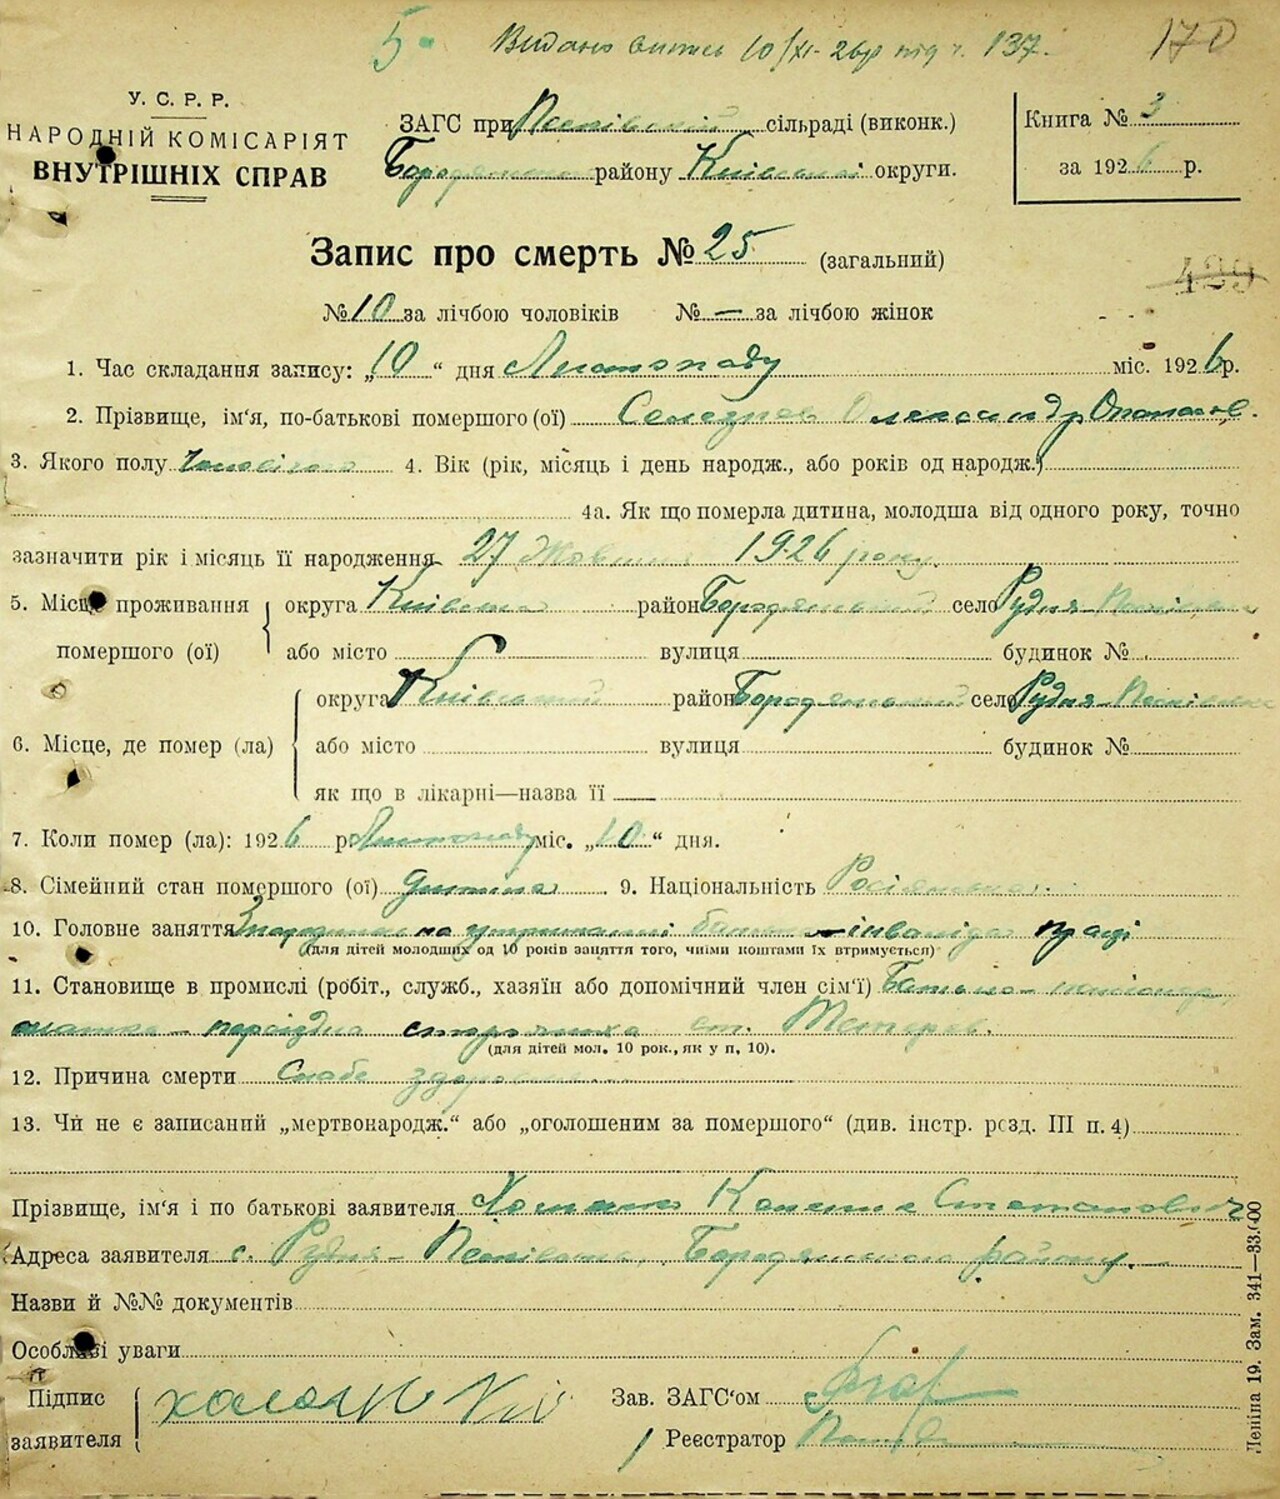 5 Видано витяг 10/XI-26р під ч. 137. 170
У. С. Р. Р.
НАРОДНІЙ КОМІСАРІЯТ
ВНУТРІШНІХ СПРАВ
ЗАГС при Пісківській сільраді (виконк.)
Бородянського району Київської округи.
Книга № 3
за 1926 р.
Запис про смерть № 25 (загальний)
429
№ 10 за лічбою чоловіків № — за лічбою жінок
1. Час складання запису: „10“ дня Листопаду міс. 1926 р.
2. Прізвище, ім'я, по-батькові помершого (ої) Селезнев Олександр Опанасов.
3. Якого полу Чоловічого 4. Вік (рік, місяць і день народж., або років од народж.)
4а. Як що померла дитина, молодша від одного року, точно
зазначити рік і місяць її народження 27 Жовтня 1926 року.
5. Місце проживання помершого (ої) округа Київська район Бородянський село Рудня-Пісківська
або місто вулиця будинок №
6. Місце, де помер (ла) округа Київський район Бородянський село Рудня-Пісківська
або місто вулиця будинок №
як що в лікарні—назва її
7. Коли помер (ла): 1926 р. Листопаду міс. „10“ дня.
8. Сімейний стан помершого (ої) дитина 9. Національність Росіянська.
10. Головне заняття на утриманні батька - інваліда праці
(для дітей молодших од 10 років заняття того, чиїми коштами їх втримується)
11. Становище в промислі (робіт., служб., хазяїн або допомічний член сім'ї) Батько - пансіонер,
матка - переїздна сторожиха ст. Тетерев.
(для дітей мол. 10 рок., як у п. 10).
12. Причина смерти Слабе здоровля
13. Чи не є записаний „мертвонародж.“ або „оголошеним за помершого“ (див. інстр. розд. III п. 4)
Прізвище, ім'я і по батькові заявителя Степанович
Адреса заявителя с. Рудня-Пісківська, Бородянського району.
Назви й №№ документів
Особливі уваги
Підпис заявителя
Зав. ЗАГС'ом
Реєстратор
Леніна 19. Зам. 341—33.000